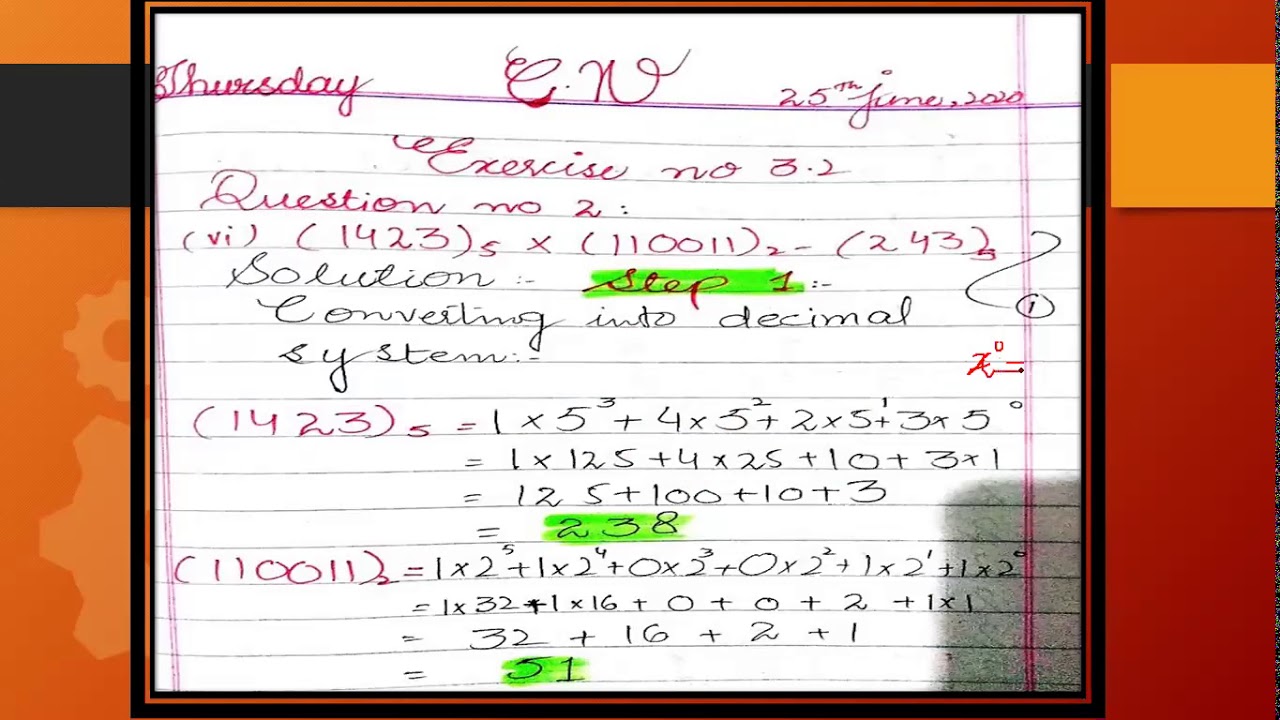 Thursday C.W 25Th june, 2020
Exercise no 3.2
Question no 2:
(vi) (1423)₅ × (110011)₂ - (243)₅
Solution :- Step 1:-
Converting into decimal ①
system:-
x⁰=
(1423)₅ = 1×5³+4×5²+2×5¹+3×5⁰
= 1×125+4×25+10+3×1
= 125+100+10+3
= 238
(110011)₂ = 1×2⁵+1×2⁴+0×2³+0×2²+1×2¹+1×2⁰
= 1×32+1×16+0+0+2+1×1
= 32+16+2+1
= 51